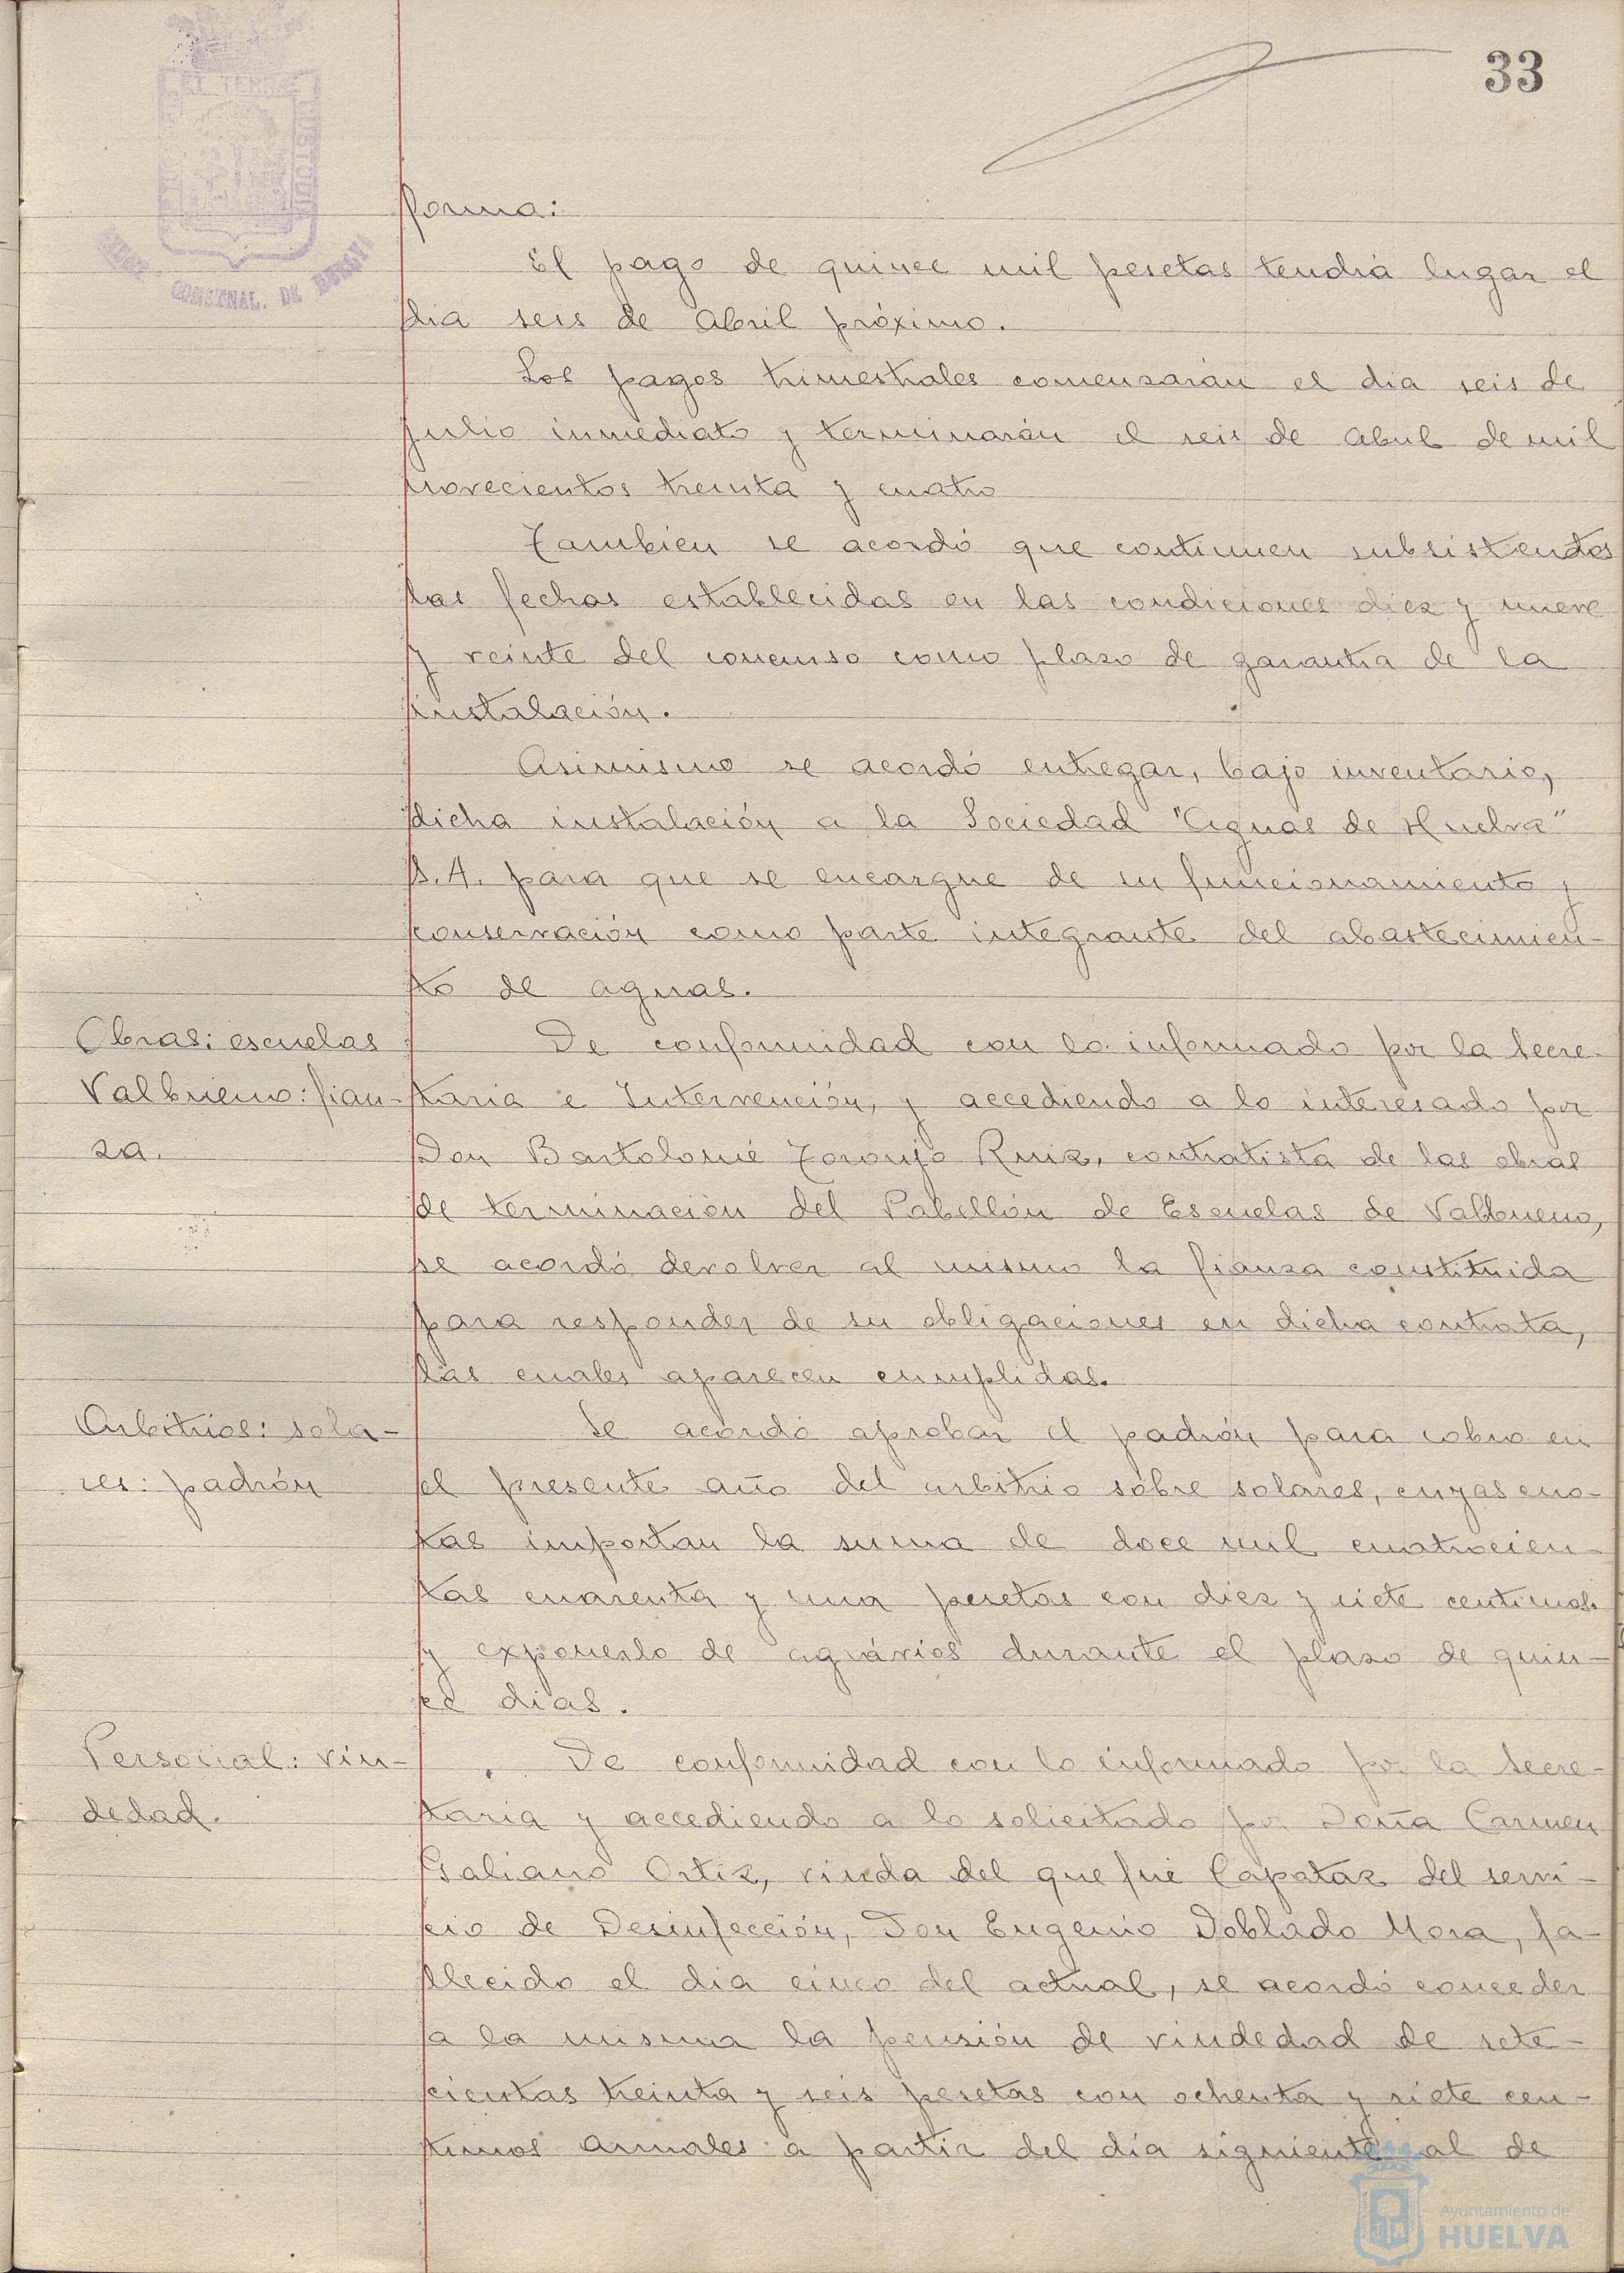 33
forma:
El pago de quince mil pesetas tendrá lugar el
dia seis de Abril próximo.
Los pagos trimestrales comenzarán el dia seis de
julio inmediato y terminarán el seis de Abril de mil
novecientos treinta y cuatro
Tambien se acordó que continuen subsistentes
las fechas establecidas en las condiciones diez y nueve
y veinte del concurso como plazo de garantia de la
instalación.
Asimismo se acordó entregar, bajo inventario,
dicha instalación a la Sociedad "Aguas de Huelva"
S.A. para que se encargue de su funcionamiento y
conservación como parte integrante del abastecimien-
to de aguas.
Obras: escuelas
Valbueno: fian-
za.
De conformidad con lo informado por la Secre-
taria e Intervención, y accediendo a lo interesado por
Don Bartolomé Toronjo Ruiz, contratista de las obras
de terminación del Pabellón de Escuelas de Valbueno,
se acordó devolver al mismo la fianza constituida
para responder de su obligaciones en dicha contrata,
las cuales aparecen cumplidas.
Arbitrios: sola-
res: padrón
Se acordó aprobar el padrón para cobro en
el presente año del arbitrio sobre solares, cuyas cuo-
tas importan la suma de doce mil cuatrocien-
tas cuarenta y una pesetas con diez y siete centimos.
y exponerlo de agravios durante el plazo de quin-
ce dias.
Personal: viu-
dedad.
De conformidad con lo informado por la Secre-
taria y accediendo a lo solicitado por Doña Carmen
Galiano Ortiz, viuda del que fué Capataz del servi-
cio de Desinfección, Don Eugenio Doblado Mora, fa-
llecido el dia cinco del actual, se acordó conceder
a la misma la pensión de viudedad de sete-
cientas treinta y seis pesetas con ochenta y siete cen-
timos anuales a partir del dia siguiente al de
CONSTNAL. DE
Ayuntamiento de
HUELVA